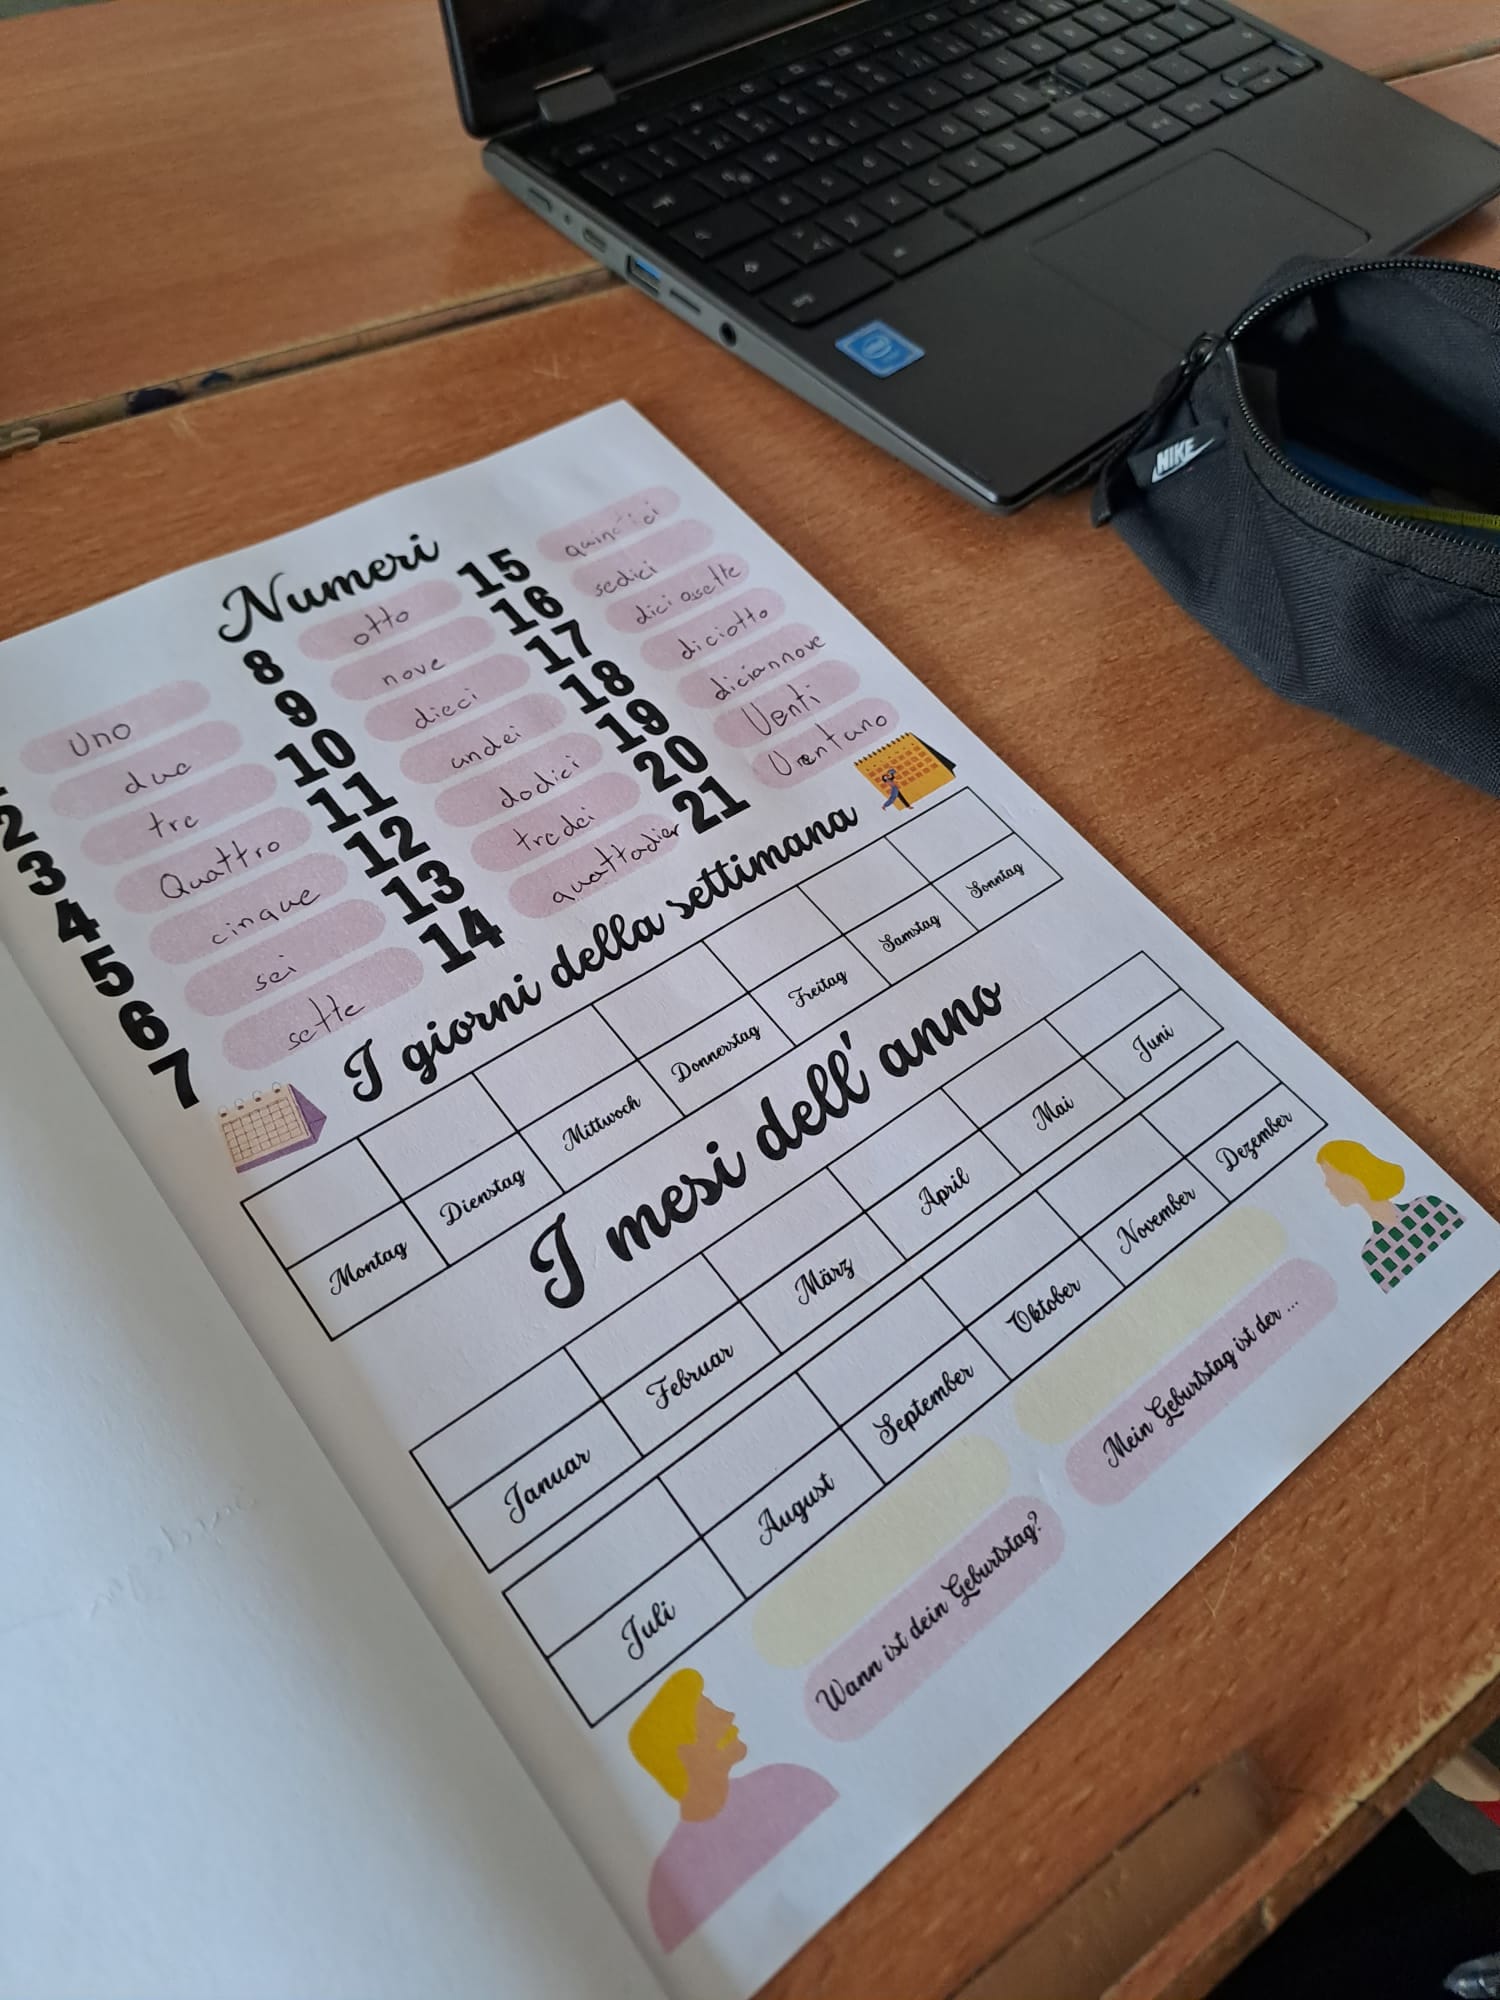 Numeri
uno
2 due
3 tre
4 Quattro
5 cinque
6 sei
7 sette
8 otto
9 nove
10 dieci
11 undici
12 dodici
13 tredci
14
15 quindici
16 sedici
17 diciasette
18 diciotto
19 diciannove
20 Venti
21
I giorni della settimana
Montag Dienstag Mittwoch Donnerstag Freitag Samstag Sonntag
I mesi dell' anno
Januar Februar März April Mai Juni
Juli August September Oktober November Dezember
Wann ist dein Geburtstag?
Mein Geburtstag ist der ...
NIKE